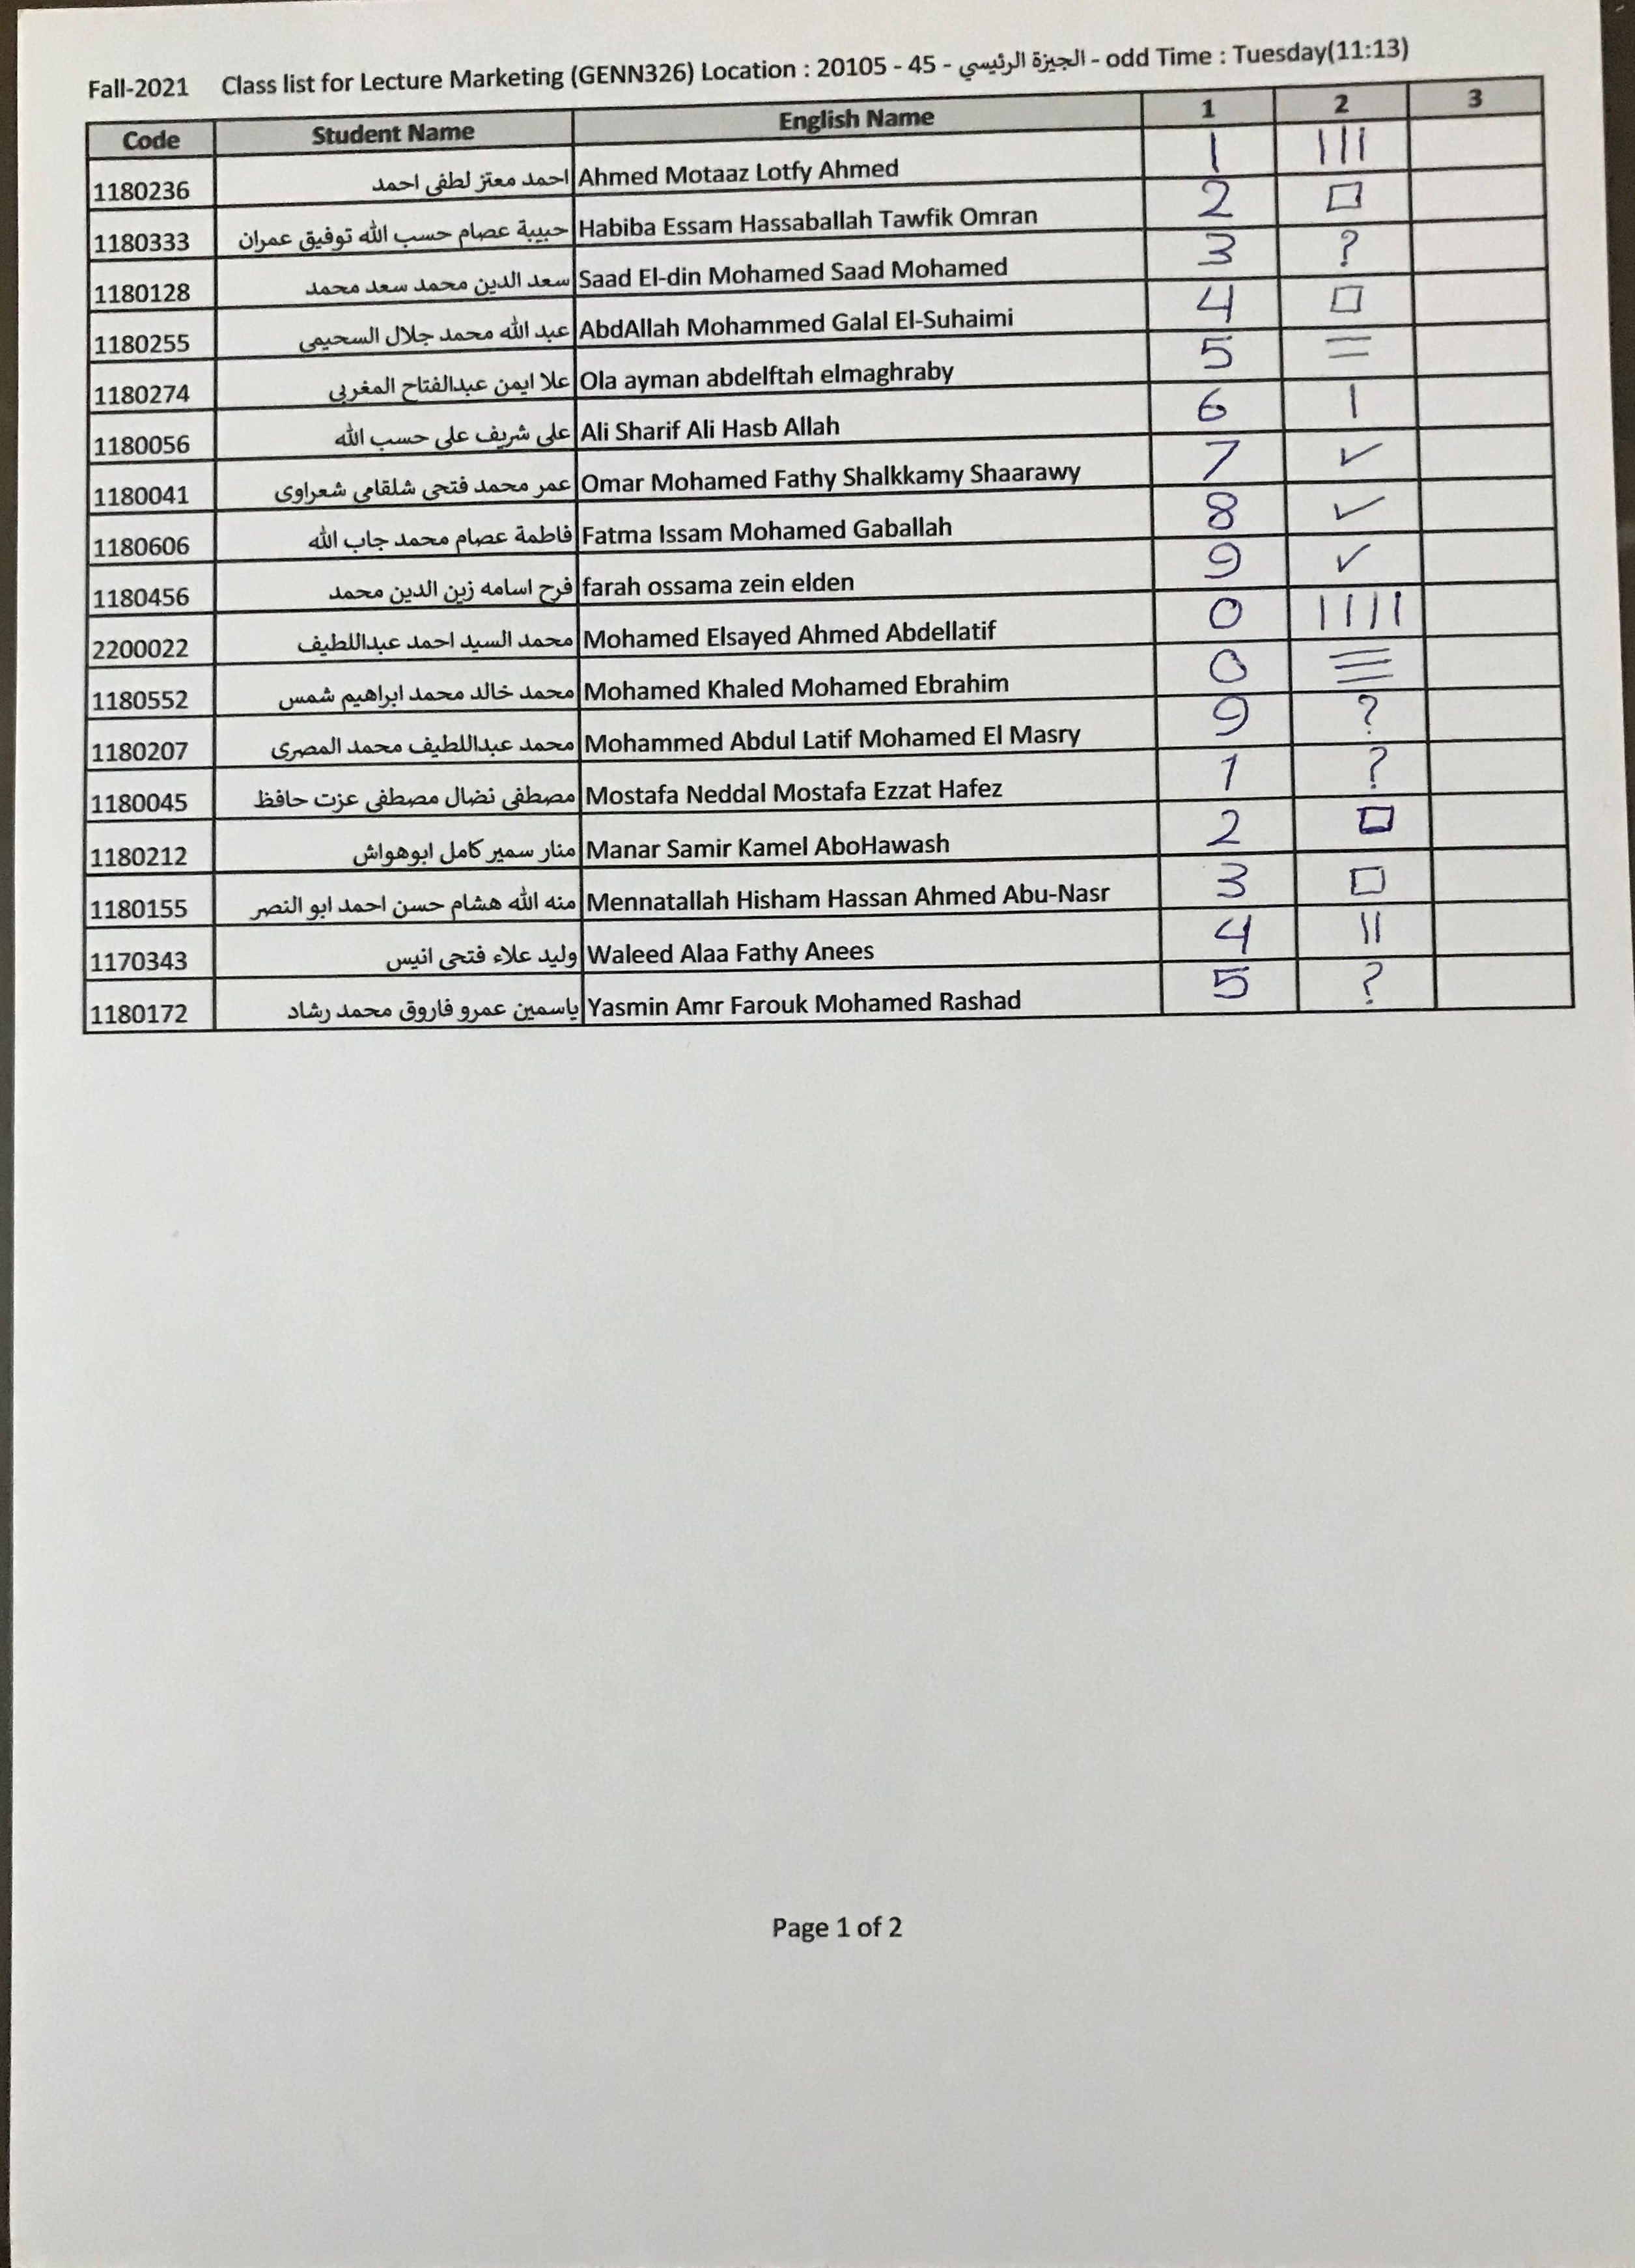 Fall-2021 Class list for Lecture Marketing (GENN326) Location : 20105 - 45 - الجيزة الرئيسي - odd Time : Tuesday(11:13)
Code Student Name English Name 1 2 3
1180236 احمد معتز لطفى احمد Ahmed Motaaz Lotfy Ahmed 1 |||
1180333 حبيبة عصام حسب الله توفيق عمران Habiba Essam Hassaballah Tawfik Omran 2 □
1180128 سعد الدين محمد سعد محمد Saad El-din Mohamed Saad Mohamed 3 ?
1180255 عبد الله محمد جلال السحيمى AbdAllah Mohammed Galal El-Suhaimi 4 □
1180274 علا ايمن عبدالفتاح المغربى Ola ayman abdelftah elmaghraby 5 =
1180056 على شريف على حسب الله Ali Sharif Ali Hasb Allah 6 |
1180041 عمر محمد فتحى شلقامي شعراوى Omar Mohamed Fathy Shalkkamy Shaarawy 7 ✓
1180606 فاطمة عصام محمد جاب الله Fatma Issam Mohamed Gaballah 8 ✓
1180456 فرح اسامه زين الدين محمد farah ossama zein elden 9 ✓
2200022 محمد السيد احمد عبداللطيف Mohamed Elsayed Ahmed Abdellatif 0 ||||
1180552 محمد خالد محمد ابراهيم شمس Mohamed Khaled Mohamed Ebrahim 0 ≡
1180207 محمد عبداللطيف محمد المصرى Mohammed Abdul Latif Mohamed El Masry 9 ?
1180045 مصطفى نضال مصطفى عزت حافظ Mostafa Neddal Mostafa Ezzat Hafez 1 ?
1180212 منار سمير كامل ابوهواش Manar Samir Kamel AboHawash 2 □
1180155 منه الله هشام حسن احمد ابو النصر Mennatallah Hisham Hassan Ahmed Abu-Nasr 3 □
1170343 وليد علاء فتحى انيس Waleed Alaa Fathy Anees 4 ||
1180172 ياسمين عمرو فاروق محمد رشاد Yasmin Amr Farouk Mohamed Rashad 5 ?
Page 1 of 2